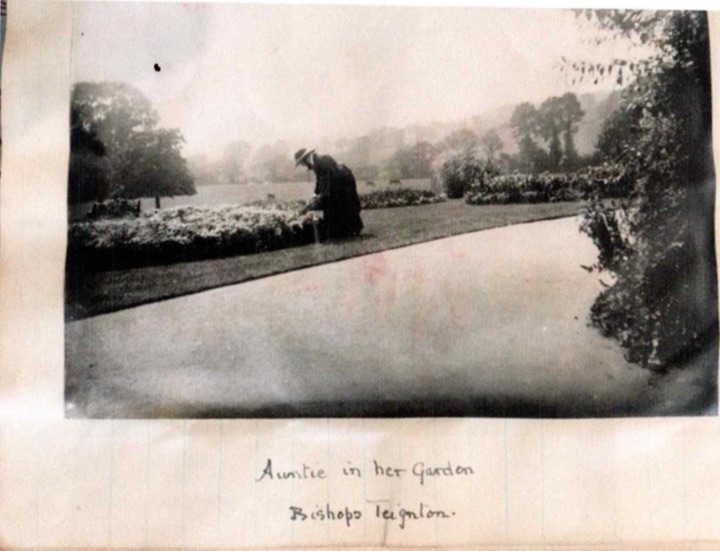 Auntie in her Garden
Bishops Teignton.